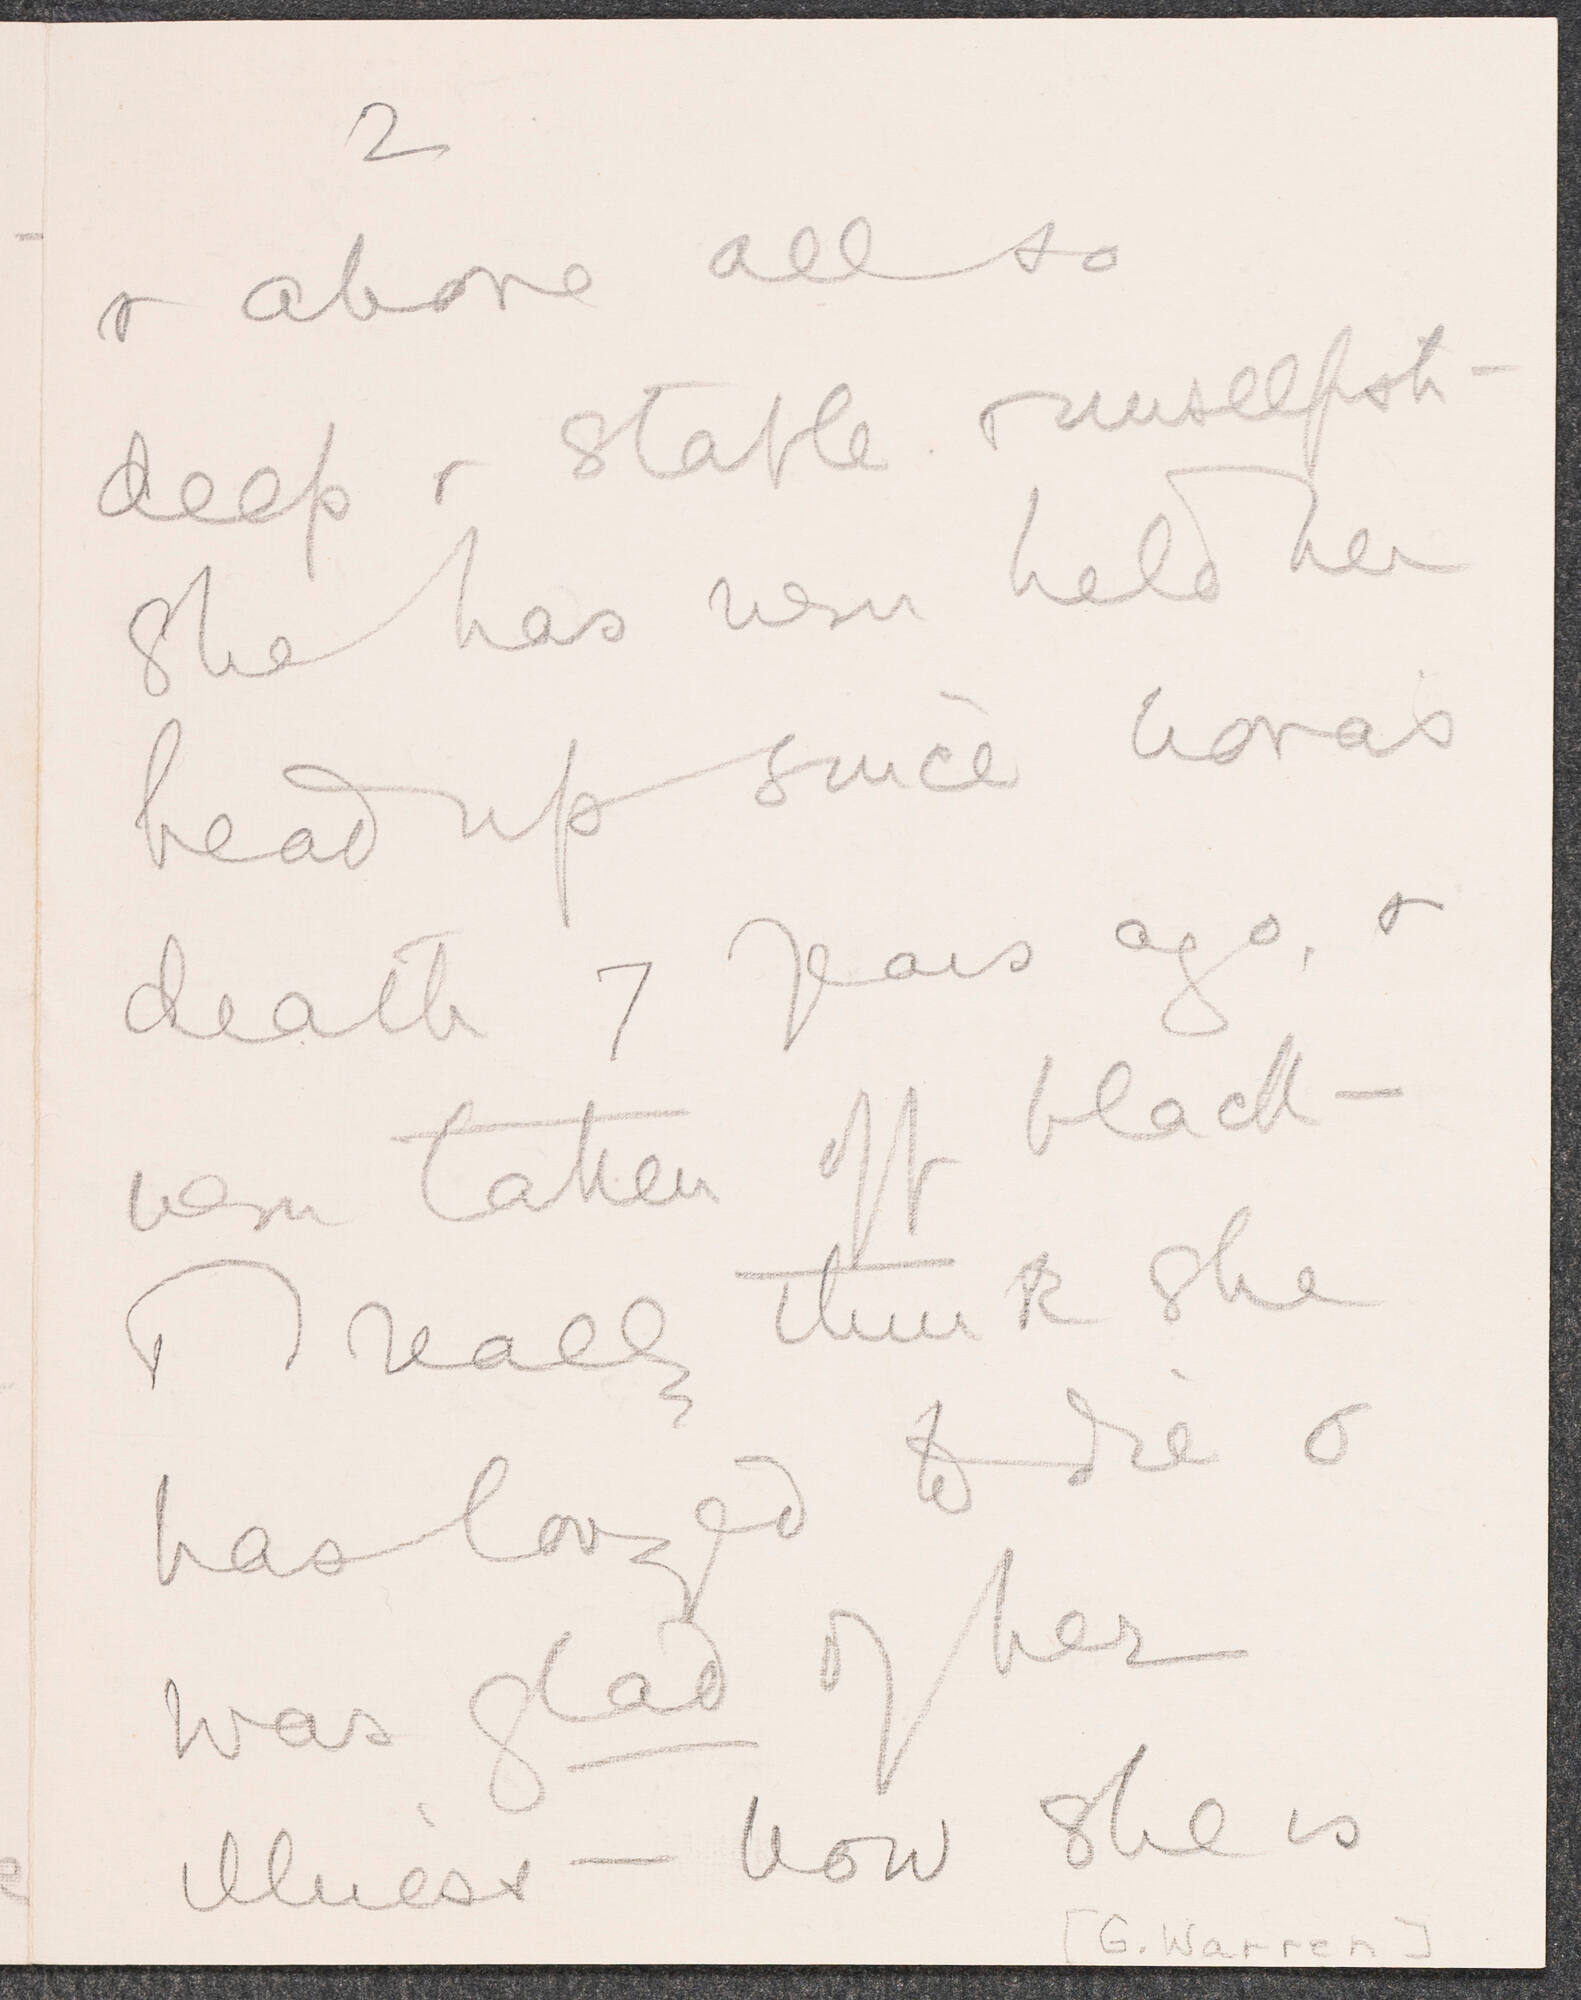 2
& above all so
deep & stable & unselfish -
She has never held her
head up since Nora's
death 7 years ago, &
never taken off black -
& I really think she
has longed to die &
was glad of her
illness - Now she is
[G. Warren]